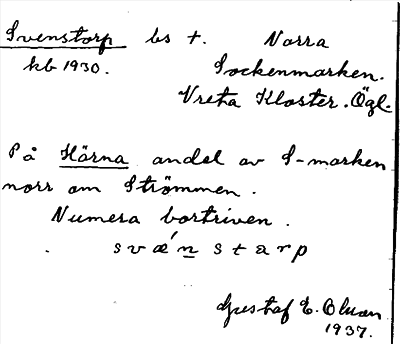 Svenstorp bs t. Norra
kb 1930. Sockenmarken.
Vreta Kloster. Ögl.
På Hörna andel av S-marken
norr om Strömmen.
Numera bortriven.
svǽnstarp
Gustaf E. Olsson
1937.